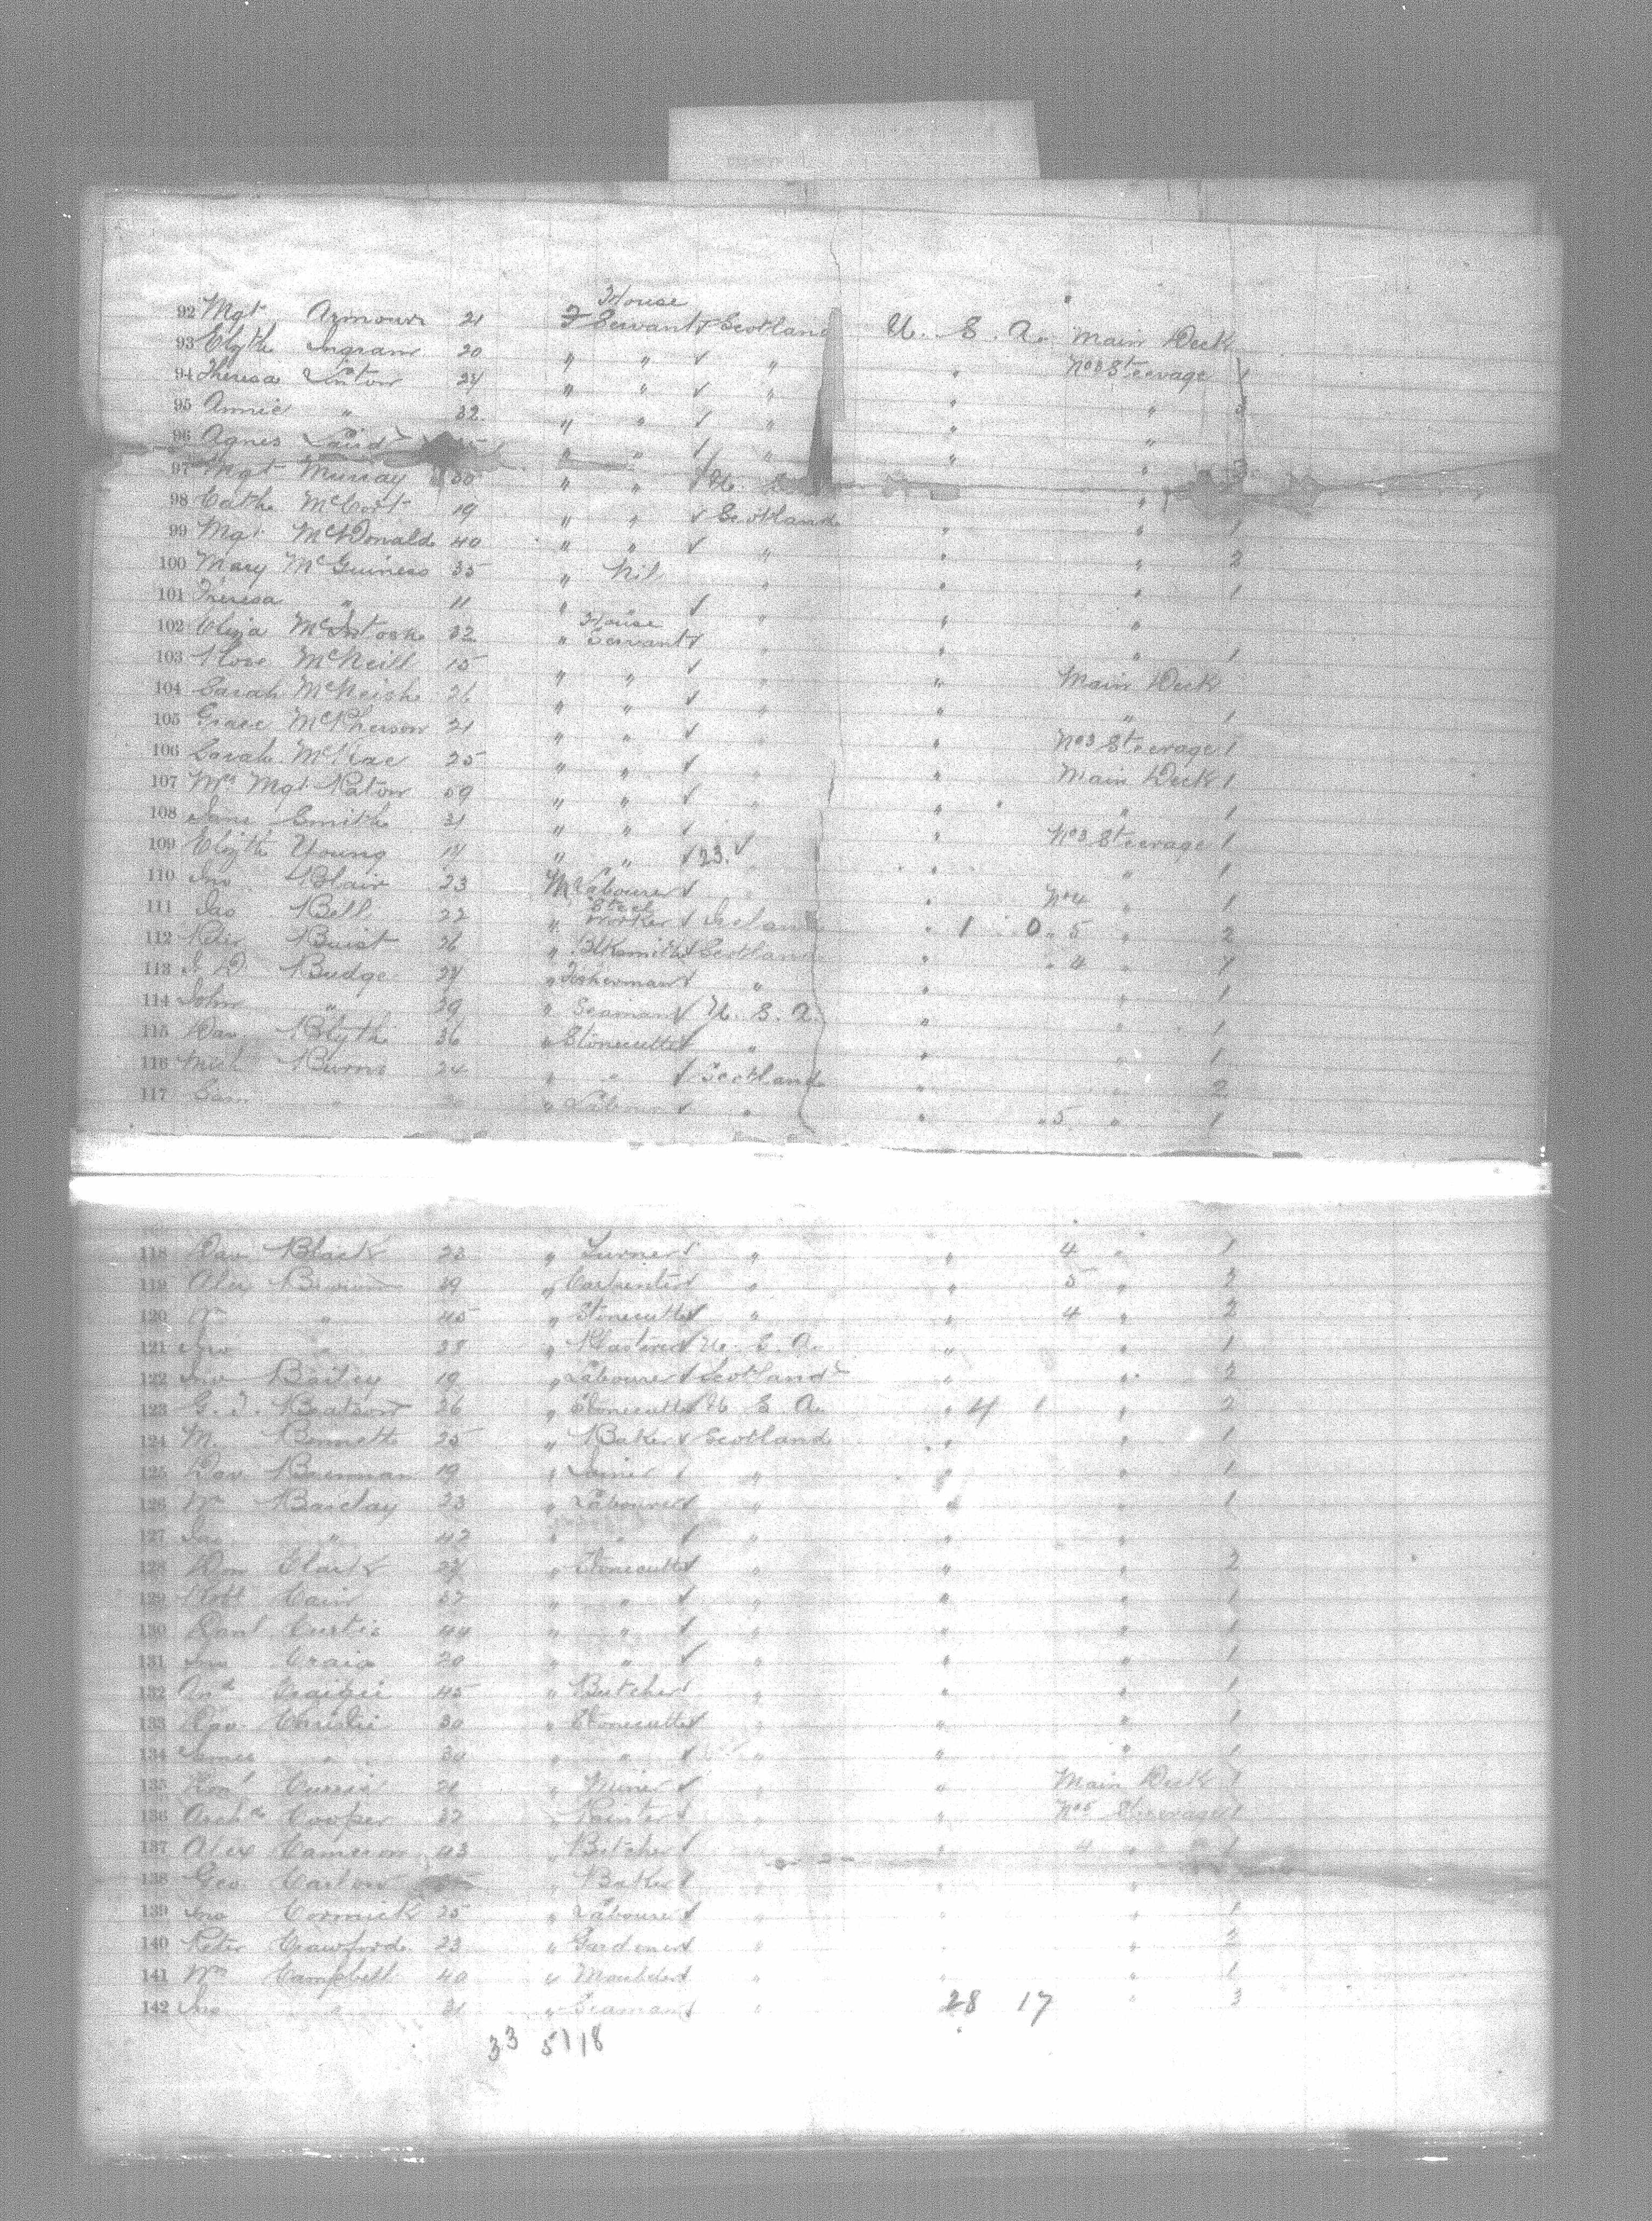 92 Mgt Armour 21 F House Servant Scotland U. S. A. Main Deck
93 Elizth Ingram 20 " " " " No 3 Steerage 1
94 Theresa Linton 24 " " " " "
95 Annie " 32 " " " " "
96 Agnes Laird " " " " "
97 Mgt Murray 30 " " U. "
98 Cath McCort 19 " " Scotland " " 1
99 Mgt McDonald 40 " " " " " 2
100 Mary McGuiness 35 " Nil " " " 1
101 Theresa " 11 " " " "
102 Eliza McIntosh 32 " House Servant " " 1
103 Rose McNeill 15 " " " " Main Deck
104 Sarah McNeish 26 " " " " " 1
105 Grace McPherson 21 " " " " No 3 Steerage 1
106 Sarah McRae 25 " " " " Main Deck 1
107 Mrs Mgt Paton 59 " " " " " 1
108 Jane Smith 31 " " " No 3 Steerage 1
109 Elizth Young 14 " " 23. " " " 1
110 Jno Blair 23 M Labourer " " No 4 " 1
111 Jas Bell 22 " Steel Worker Ireland " 1 0 " 5 " 2
112 Peter Buist 26 " Blksmith Scotland " " 4 "
113 J. D. Budge 27 " Fisherman " " " 1
114 John " 29 " Seaman U. S. A. " " 1
115 Dav Blyth 36 " Stonecutter " " " 1
116 Mich Burns 24 " " Scotland " " 2
117 Sam " " Labourer " " " 5 " 1
118 Dav Black 23 " Turner " " 4 " 1
119 Alex Brown 19 " Carpenter " " 5 " 2
120 Wm " 45 " Stonecutter " " 4 " 2
121 Jno " 28 " Plasterer U. S. A. " " 1
122 Jno Bailey 19 " Labourer Scotland " " 2
123 G. J. Beatson 26 " Stonecutter U. S. A. " 4 1 " 2
124 M. Bennett 25 " Baker Scotland " " 1
125 Dav Brennan 19 " Joiner " " " 1
126 Wm Barclay 23 " Labourer " " " 1
127 Jas " 42 " " " " "
128 Don Clark 27 " Stonecutter " " " 2
129 Robt Cain 37 " " " " " 1
130 Danl Curtis 44 " " " " " 1
131 Jno Craig 20 " " " " " 1
132 And Craigie 45 " Butcher " " " 1
133 Dav Christie 30 " Stonecutter " " " 1
134 James " 34 " " " " " 1
135 Currie 21 " Miner " " Main Deck 1
136 Archd Cooper 32 " Painter " " No 5 Steerage 1
137 Alex Cameron 43 " Butcher " " 4 " 1
138 Geo " Baker " " "
139 Jno Cormick 25 " Labourer " " " 1
140 Peter Crawford 23 " Gardener " " " 2
141 Wm Campbell 40 " Moulder " " " 1
142 Jno " 31 " Seaman " 28 17 " 3
33 5118